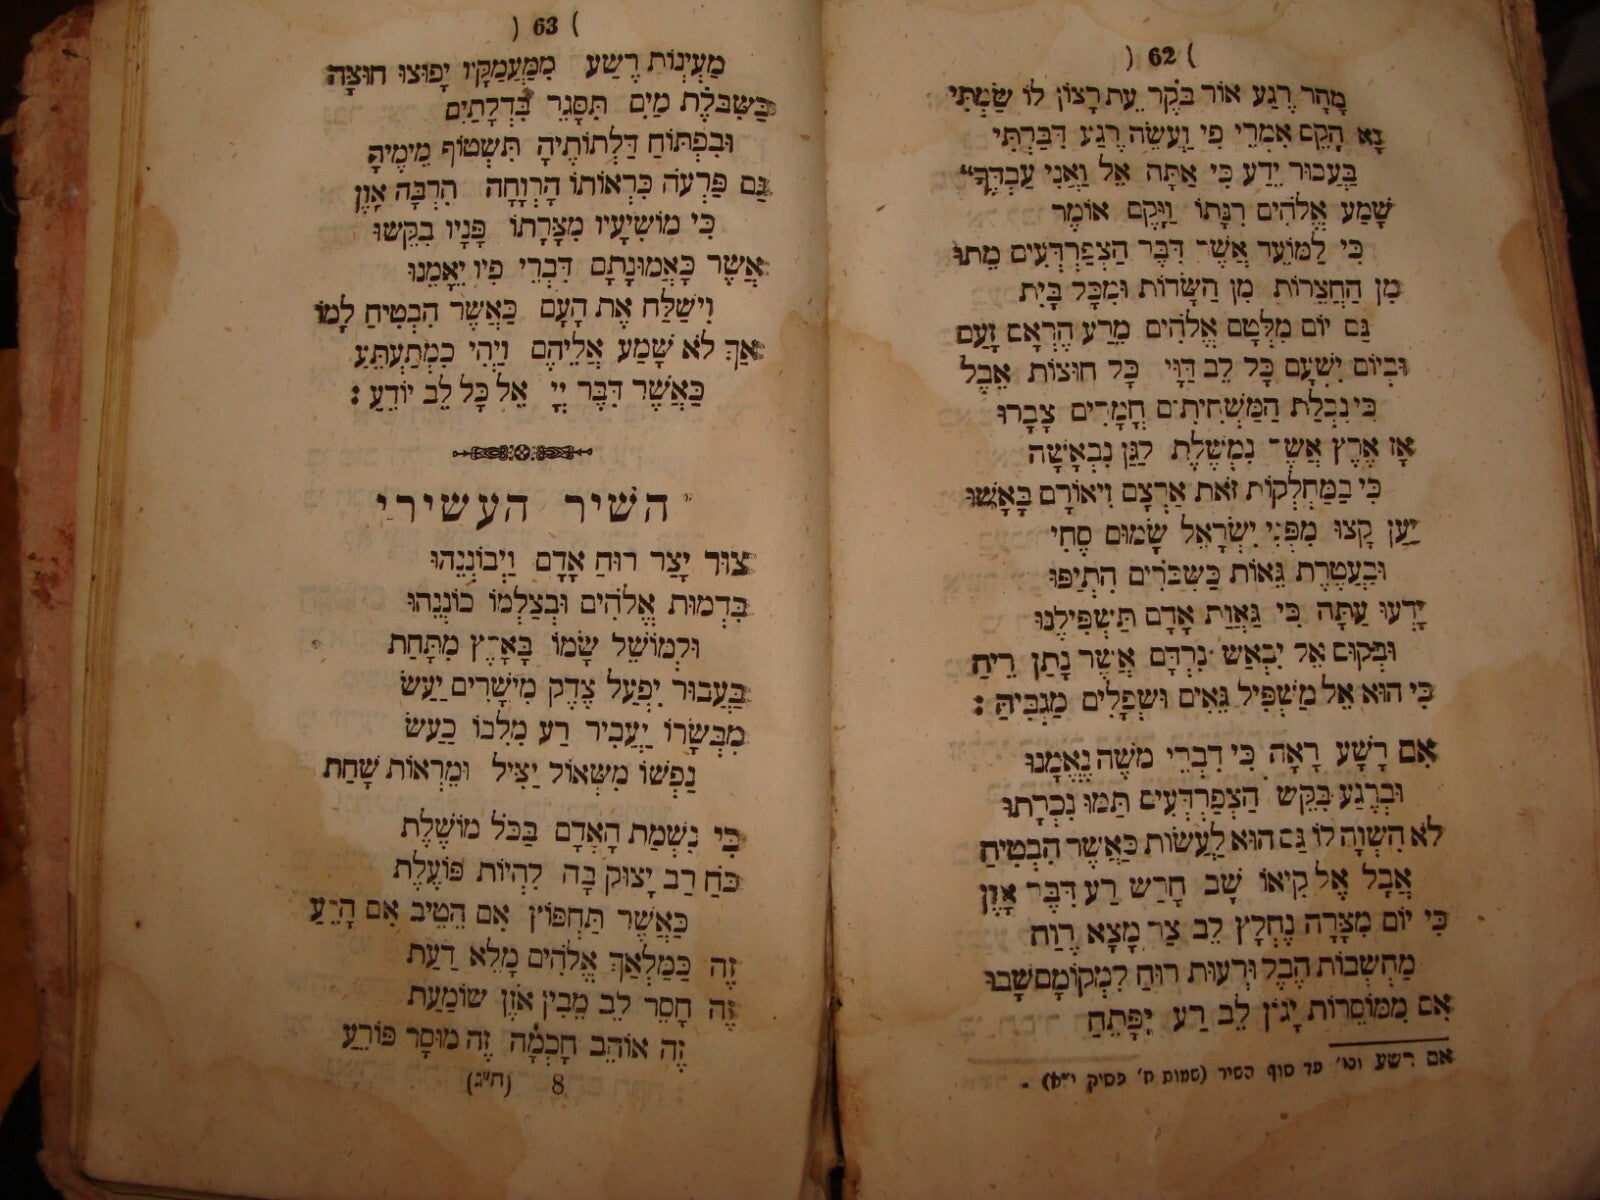 ( 62 )
מָהָר רֶגַע אוֹר בֹּקֶר עֵת רָצוֹן לוֹ שַׂמְתִּי
נָא הָקֵם אִמְרֵי פִי וַעֲשֵׂה רֶגַע דִּבַּרְתִּי
בַּעֲבוּר יֵדַע כִּי אַתָּה אֵל וַאֲנִי עַבְדֶּךָ״
שָׁמַע אֱלֹהִים רִנָּתוֹ וַיָּקֶם אוֹמֶר
כִּי לַמּוֹעֵד אֲשֶׁר דִּבֶּר הַצְפַרְדְּעִים מֵתוּ
מִן הַחֲצֵרוֹת מִן הַשָּׂדוֹת וּמִכָּל בָּיִת
גַּם יוֹם מִלְּטָם אֱלֹהִים מֵרַע הֶרְאָם זָעַם
וּבְיוֹם יִשְׁעָם כָּל לֵב דַּוָּי כָּל חוּצוֹת אֵבֶל
כִּי נִבְלַת הַמַּשְׁחִיתִים חֳמָרִים צָבָרוּ
אָז אֶרֶץ אֲשֶׁר נִמְשֶׁלֶת לַגַּן נִבְאָשָׁה
כִּי בַמַּחְלְקוֹת זֹאת אַרְצָם וִיאוֹרָם בָּאָשׁוּ
יַעַן קָצוּ מִפְּנֵי יִשְׂרָאֵל שָׂמוּם סְחִי
וּבַעֲטֶרֶת גֵּאוּת כַּשִּׁכֹּרִים הִתְיַפּוּ
יָדְעוּ עַתָּה כִּי גַאֲוַת אָדָם תַּשְׁפִּילֶנּוּ
וּבְקוּם אֵל יִבְאַשׁ נִרְדָּם אֲשֶׁר נָתַן רֵיחַ
כִּי הוּא אֵל מַשְׁפִּיל גֵּאִים וּשְׁפָלִים מַגְבִּיהַּ :
אִם רָשָׁע רָאָה כִּי דִבְרֵי משֶׁה נֶאֱמָנוּ
וּבְרֶגַע בִּקֵּשׁ הַצְפַרְדְּעִים תַּמּוּ נִכְרָתוּ
לֹא הִשְׁוָה לוֹ גַּם הוּא לַעֲשׂוֹת כַּאֲשֶׁר הִבְטִיחַ
אֲבָל אֶל קִיאוֹ שָׁב חָרַשׁ רַע דִּבֶּר אָוֶן
כִּי יוֹם מִצָּרָה נֶחְלָץ לֵב צַר מָצָא רֶוַח
מַחְשְׁבוֹת הֶבֶל וּרְעוּת רוּחַ לִמְקוֹמָם שָׁבוּ
אִם מִמּוֹסֵרוֹת יָגוֹן לֵב רַע יִפָּתֵחַ
אם רשע וכו׳ עד סוף השיר (שמות ח׳ פסוק י״א) .
( 63 )
מַעְיְנוֹת רֶשַׁע מִמַּעֲמַקָּיו יָפוּצוּ חוּצָה
כַּשִּׁבֹּלֶת מַיִם תִּסָּגֵר בִּדְלָתַיִם
וּבִפְתוֹחַ דַּלְתוֹתֶיהָ תִּשְׁטוֹף מֵימֶיהָ
גַּם פַּרְעֹה כִּרְאוֹתוֹ הָרְוָחָה הִרְבָּה אָוֶן
כִּי מוֹשִׁיעָיו מִצָּרָתוֹ פָּנָיו בִקֵּשׁוּ
אֲשֶׁר כָּאֱמוּנָתָם דִּבְרֵי פִיו יֵאָמֵנוּ
וִישַׁלַּח אֶת הָעָם כַּאֲשֶׁר הִבְטִיחַ לָמוֹ
אַךְ לֹא שָׁמַע אֲלֵיהֶם וַיְהִי כִמְתַעְתֵּעַ
כַּאֲשֶׁר דִּבֶּר יְיָ אֶל כָּל לֵב יוֹדֵעַ :
השיר העשירי
צוּר יָצַר רוּחַ אָדָם וַיְבוֹנְנֵהוּ
בִּדְמוּת אֱלֹהִים וּבְצַלְמוֹ כּוֹנְנֵהוּ
וּלְמוֹשֵׁל שָׂמוֹ בָּאָרֶץ מִתָּחַת
בַּעֲבוּר יִפְעַל צֶדֶק מֵישָׁרִים יַעַשׂ
מִבְּשָׂרוֹ יַעֲבִיר רַע מִלִּבּוֹ כַעַשׂ
נַפְשׁוֹ מִשְּׁאוֹל יַצִּיל וּמֵרְאוֹת שָׁחַת
כִּי נִשְׁמַת הָאָדָם בַּכֹּל מוֹשֶׁלֶת
כֹּחַ רַב יָצוּק בָּהּ לִהְיוֹת פּוֹעֶלֶת
כַּאֲשֶׁר תַּחְפּוֹץ אִם הֵטֵיב אִם הָרֵעַ
זֶה כְּמַלְאַךְ אֱלֹהִים מָלֵא דַעַת
זֶה חָסֵר לֵב מֵבִין אֹזֶן שׁוֹמַעַת
זֶה אוֹהֵב חָכְמָה זֶה מוּסָר פּוֹרֵעַ
8 (ח״ג)